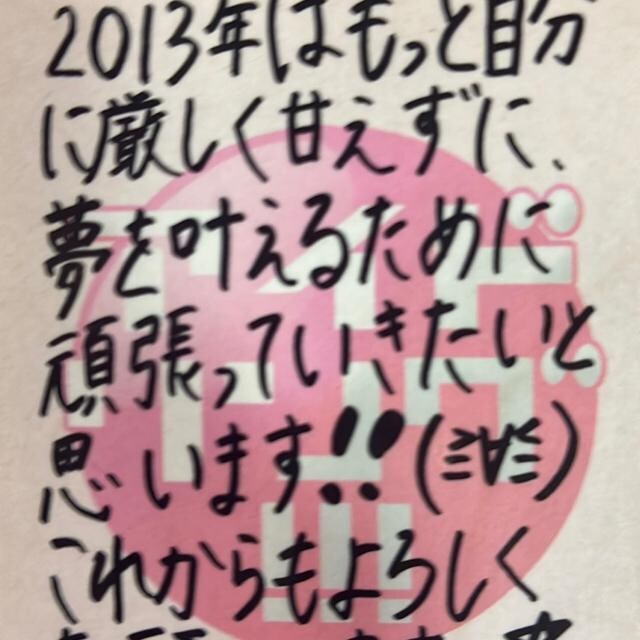 2013年はもっと自分
に厳しく甘えずに、
夢を叶えるために
頑張っていきたいと
思います!!(≧∀≦)
これからもよろしく